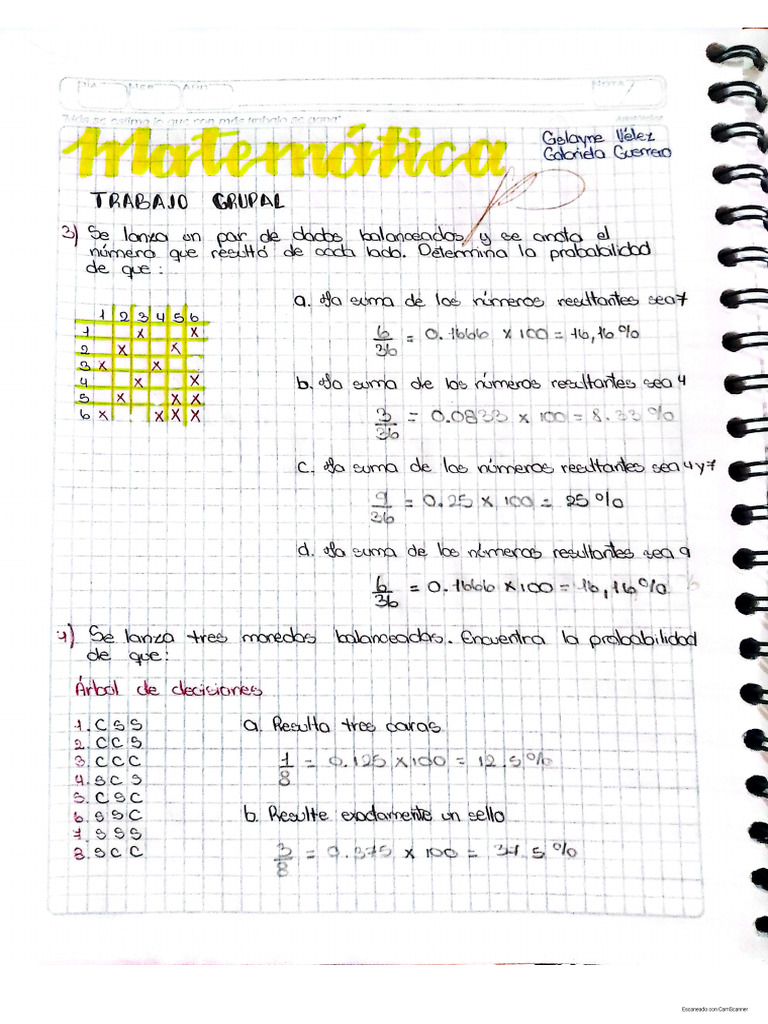 Día Mes Año Nota
"Más se estima lo que con más trabajo se gana"
Matemática
Gelayne Vélez
Gabriela Guerrero
TRABAJO GRUPAL
3) Se lanza un par de dados balanceados y se anota el
número que resultó de cada lado. Determina la probabilidad
de que:
1 2 3 4 5 6
1 x x
2 x x
3 x x
4 x x
5 x x x
6 x x x x
a. La suma de los números resultantes sea 7
6/36 = 0.1666 x 100 = 16,16%
b. La suma de los números resultantes sea 4
3/36 = 0.0833 x 100 = 8.33%
c. La suma de los números resultantes sea 4 y 7
9/36 = 0.25 x 100 = 25%
d. La suma de los números resultantes sea 9
6/36 = 0.1666 x 100 = 16,16%
4) Se lanza tres monedas balanceadas. Encuentra la probabilidad
de que:
Árbol de decisiones
1. C S S
2. C C S
3. C C C
4. S C S
5. C S C
6. S S C
7. S S S
8. S C C
a. Resulta tres caras
1/8 = 0.125 x 100 = 12.5%
b. Resulte exactamente un sello
3/8 = 0.375 x 100 = 37.5%
Escaneado con CamScanner